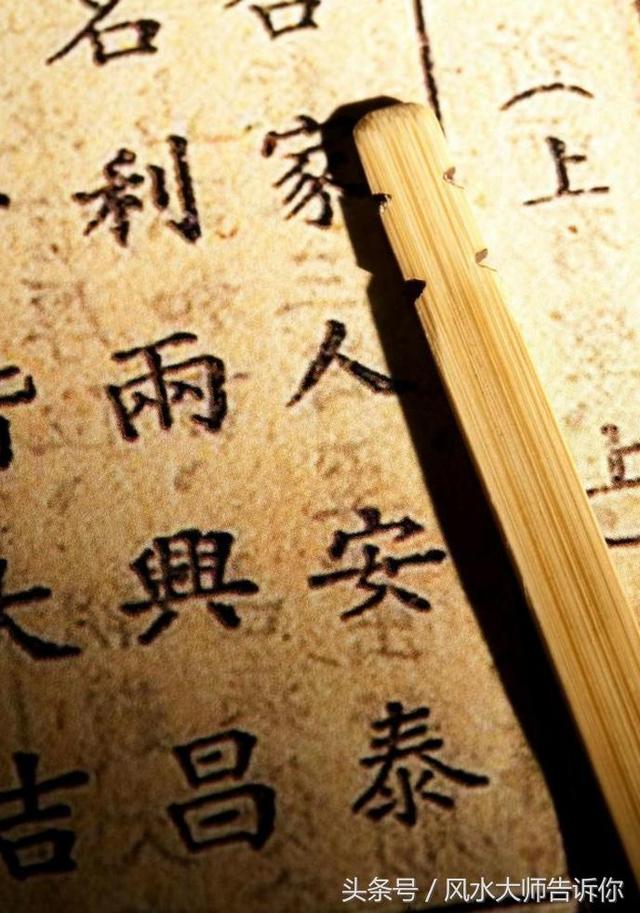 （上
合家人安泰
名利兩興昌
大吉
头条号 / 风水大师告诉你